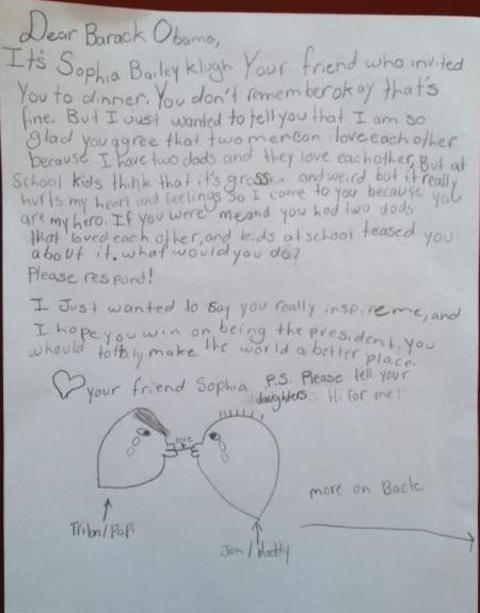 Dear Barack Obama,
It's Sophia Bailey Klugh Your friend who invited
You to dinner. You don't remember okay that's
fine. But I Just wanted to tell you that I am so
glad you agree that two men can love each other
because I have two dads and they love each other, But at
School kids think that it's gross and weird but it really
hurts my heart and feelings So I come to you because you
are my hero. If you were me and you had two dads
that loved each other, and kids at school teased you
about it, what would you do?
Please respond!
I Just wanted to say you really inspire me, and
I hope you win on being the president. you
whould tottaly make the world a better place.
your friend Sophia
P.S. Please tell your
daughters Hi for me!
love
more on Back
Jon / daddy